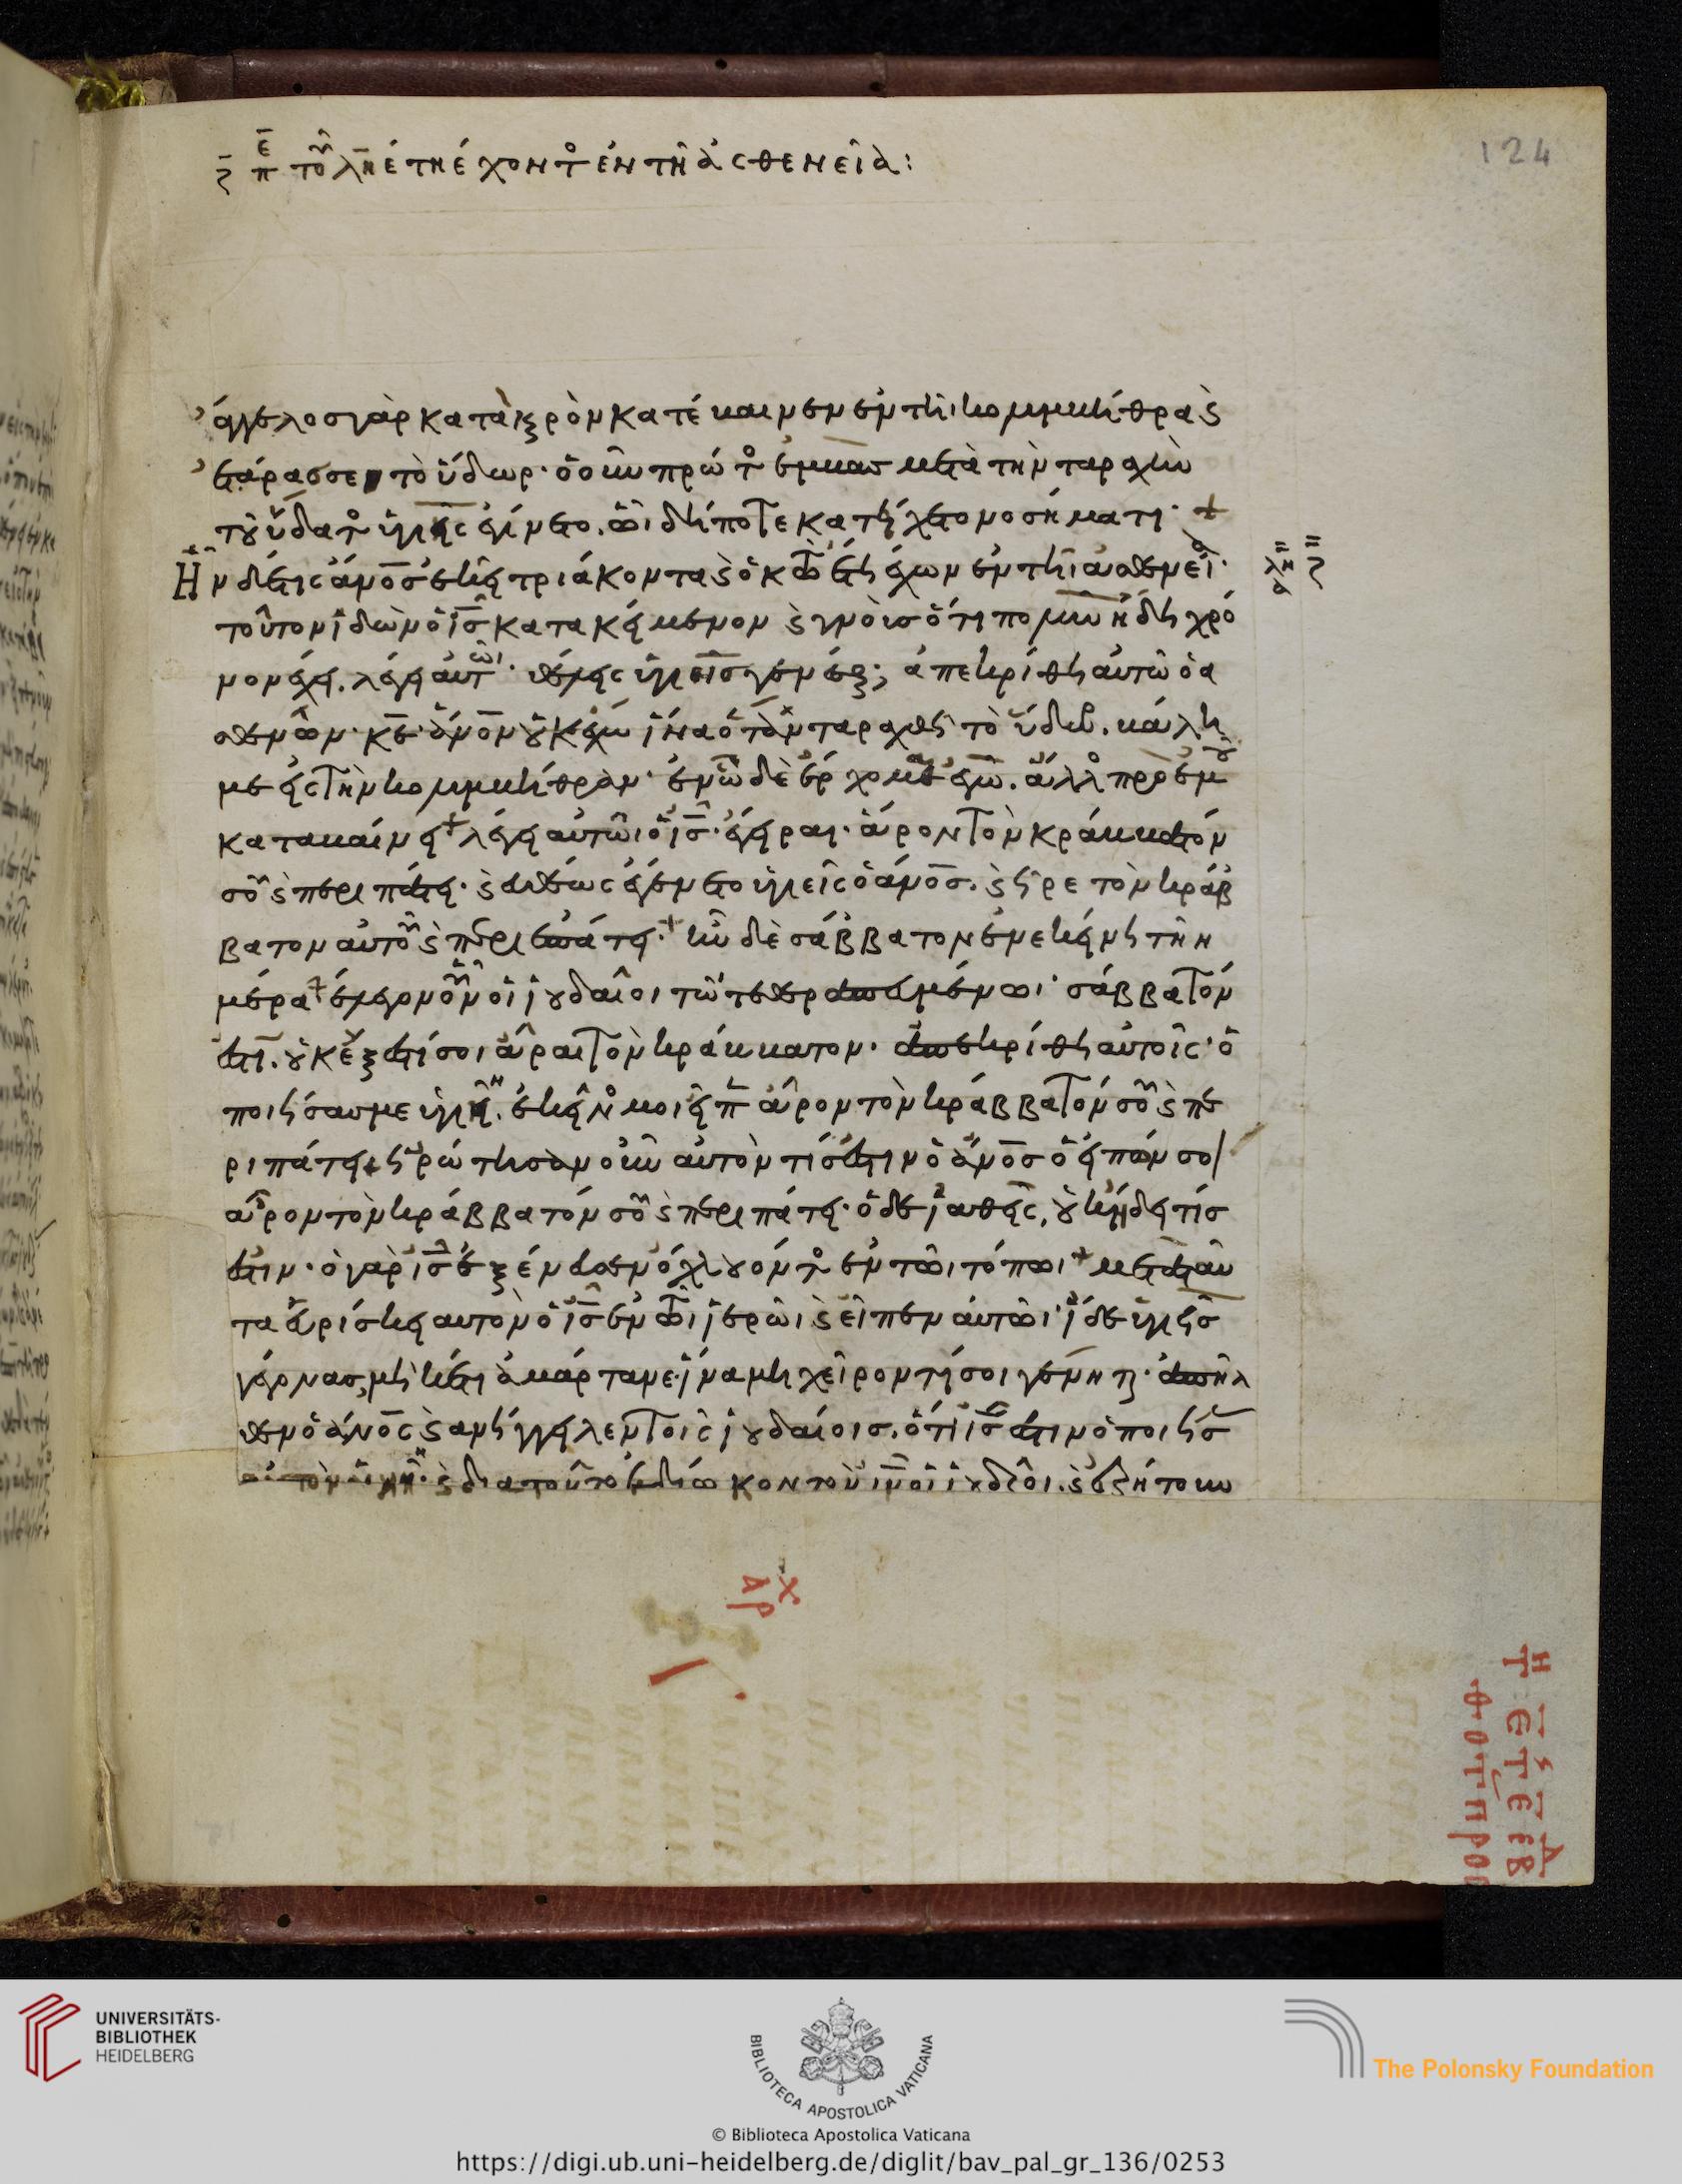 ζ πε τοῦ λη ἔτη ἔχοντος ἐν τῆ ἀσθενεία:
124
ἄγγελος γὰρ κατὰ κρὸν κατέβαινεν ἐν τῆ κολυμβήθρα ϗ
ἐτάρασσε τὸ ὕδωρ· ὁ οὖν πρῶτος ἐμβὰς μετὰ τὴν ταραχὴν
τοῦ ὕδατος ὑγιὴς ἐγίνετο. ὧι δήποτε κατείχετο νοσήματι·
Ἦν δέ τις ἄνος ἐκεῖ τριάκοντα ϗ ὀκτὼ ἔτη ἔχων ἐν τῆ ἀσθενεία·
τοῦτον ἰδὼν ὁ ις κατακείμενον ϗ γνοὺς ὅτι πολὺν ἤδη χρό
νον ἔχει. λέγει αὐτῶι· θέλεις ὑγιὴς γενέσ; ἀπεκρίθη αὐτῶ ὁ ἀ
σθενῶν· κε ἄνον οὐκ ἔχω ἵνα ὅταν ταραχθῆ τὸ ὕδωρ. βάλη
με εἰς τὴν κολυμβήθραν· ἐν ὧ δὲ ἔρχομαι ἐγὼ. ἄλλος πρὸ ἐμοῦ
καταβαίνει λέγει αὐτῶι ὁ ις· ἔγειραι· ἆρον τὸν κράββατόν
σου ϗ περιπάτει· ϗ εὐθέως ἐγένετο ὑγιεῖς ὁ ἄνος. ϗ ἦρε τὸν κράβ
βατον αὐτοῦ ϗ περιεπάτει· ἦν δὲ σάββατον ἐν ἐκείνη τῆ η
μέρα ἔλεγον οὖν οἱ ἰουδαῖοι τῶ τεθεραπευμένωι· σάββατόν
ἐστι. οὐκ ἔξεστί σοι ἆραι τὸν κράββατον· ἀπεκρίθη αὐτοῖς· ὁ
ποιήσας με ὑγιῆ. ἐκεῖνος μοι εἶπ ἆρον τὸν κράββατόν σου ϗ πε
ριπάτει ἠρώτησαν οὖν αὐτὸν τίς ἐστιν ὁ ἄνος ὁ εἰπών σοι
ἆρον τὸν κράββατόν σου ϗ περιπάτει· ὁ δὲ ἰαθεὶς, οὐκ ἤδει τίς
ἐστιν· ὁ γὰρ ις ἐξένευσεν ὄχλου ὄντος ἐν τῶι τόπωι μετὰ ταῦ
τα εὑρίσκει αὐτὸν ὁ ις ἐν τῶι ἱερῶι ϗ εἶπεν αὐτῶι· ἴδε ὑγιὴς
γέγονας, μηκέτι ἁμάρτανε· ἵνα μὴ χεῖρον τί σοι γένηται· ἀπῆλ
θεν ὁ ἄνος ϗ ἀνήγγειλεν τοῖς ἰουδαίοις. ὅτι ις ἐστιν ὁ ποιήσ
αὐτὸν ὑγιῆ· ϗ διὰ τοῦτο ἐδίωκον τὸν ιν οἱ ἰουδαῖοι. ϗ ἐζήτουν
UNIVERSITÄTS-
BIBLIOTHEK
HEIDELBERG
BIBLIOTECA APOSTOLICA VATICANA
The Polonsky Foundation
© Biblioteca Apostolica Vaticana
https://digi.ub.uni-heidelberg.de/diglit/bav_pal_gr_136/0253